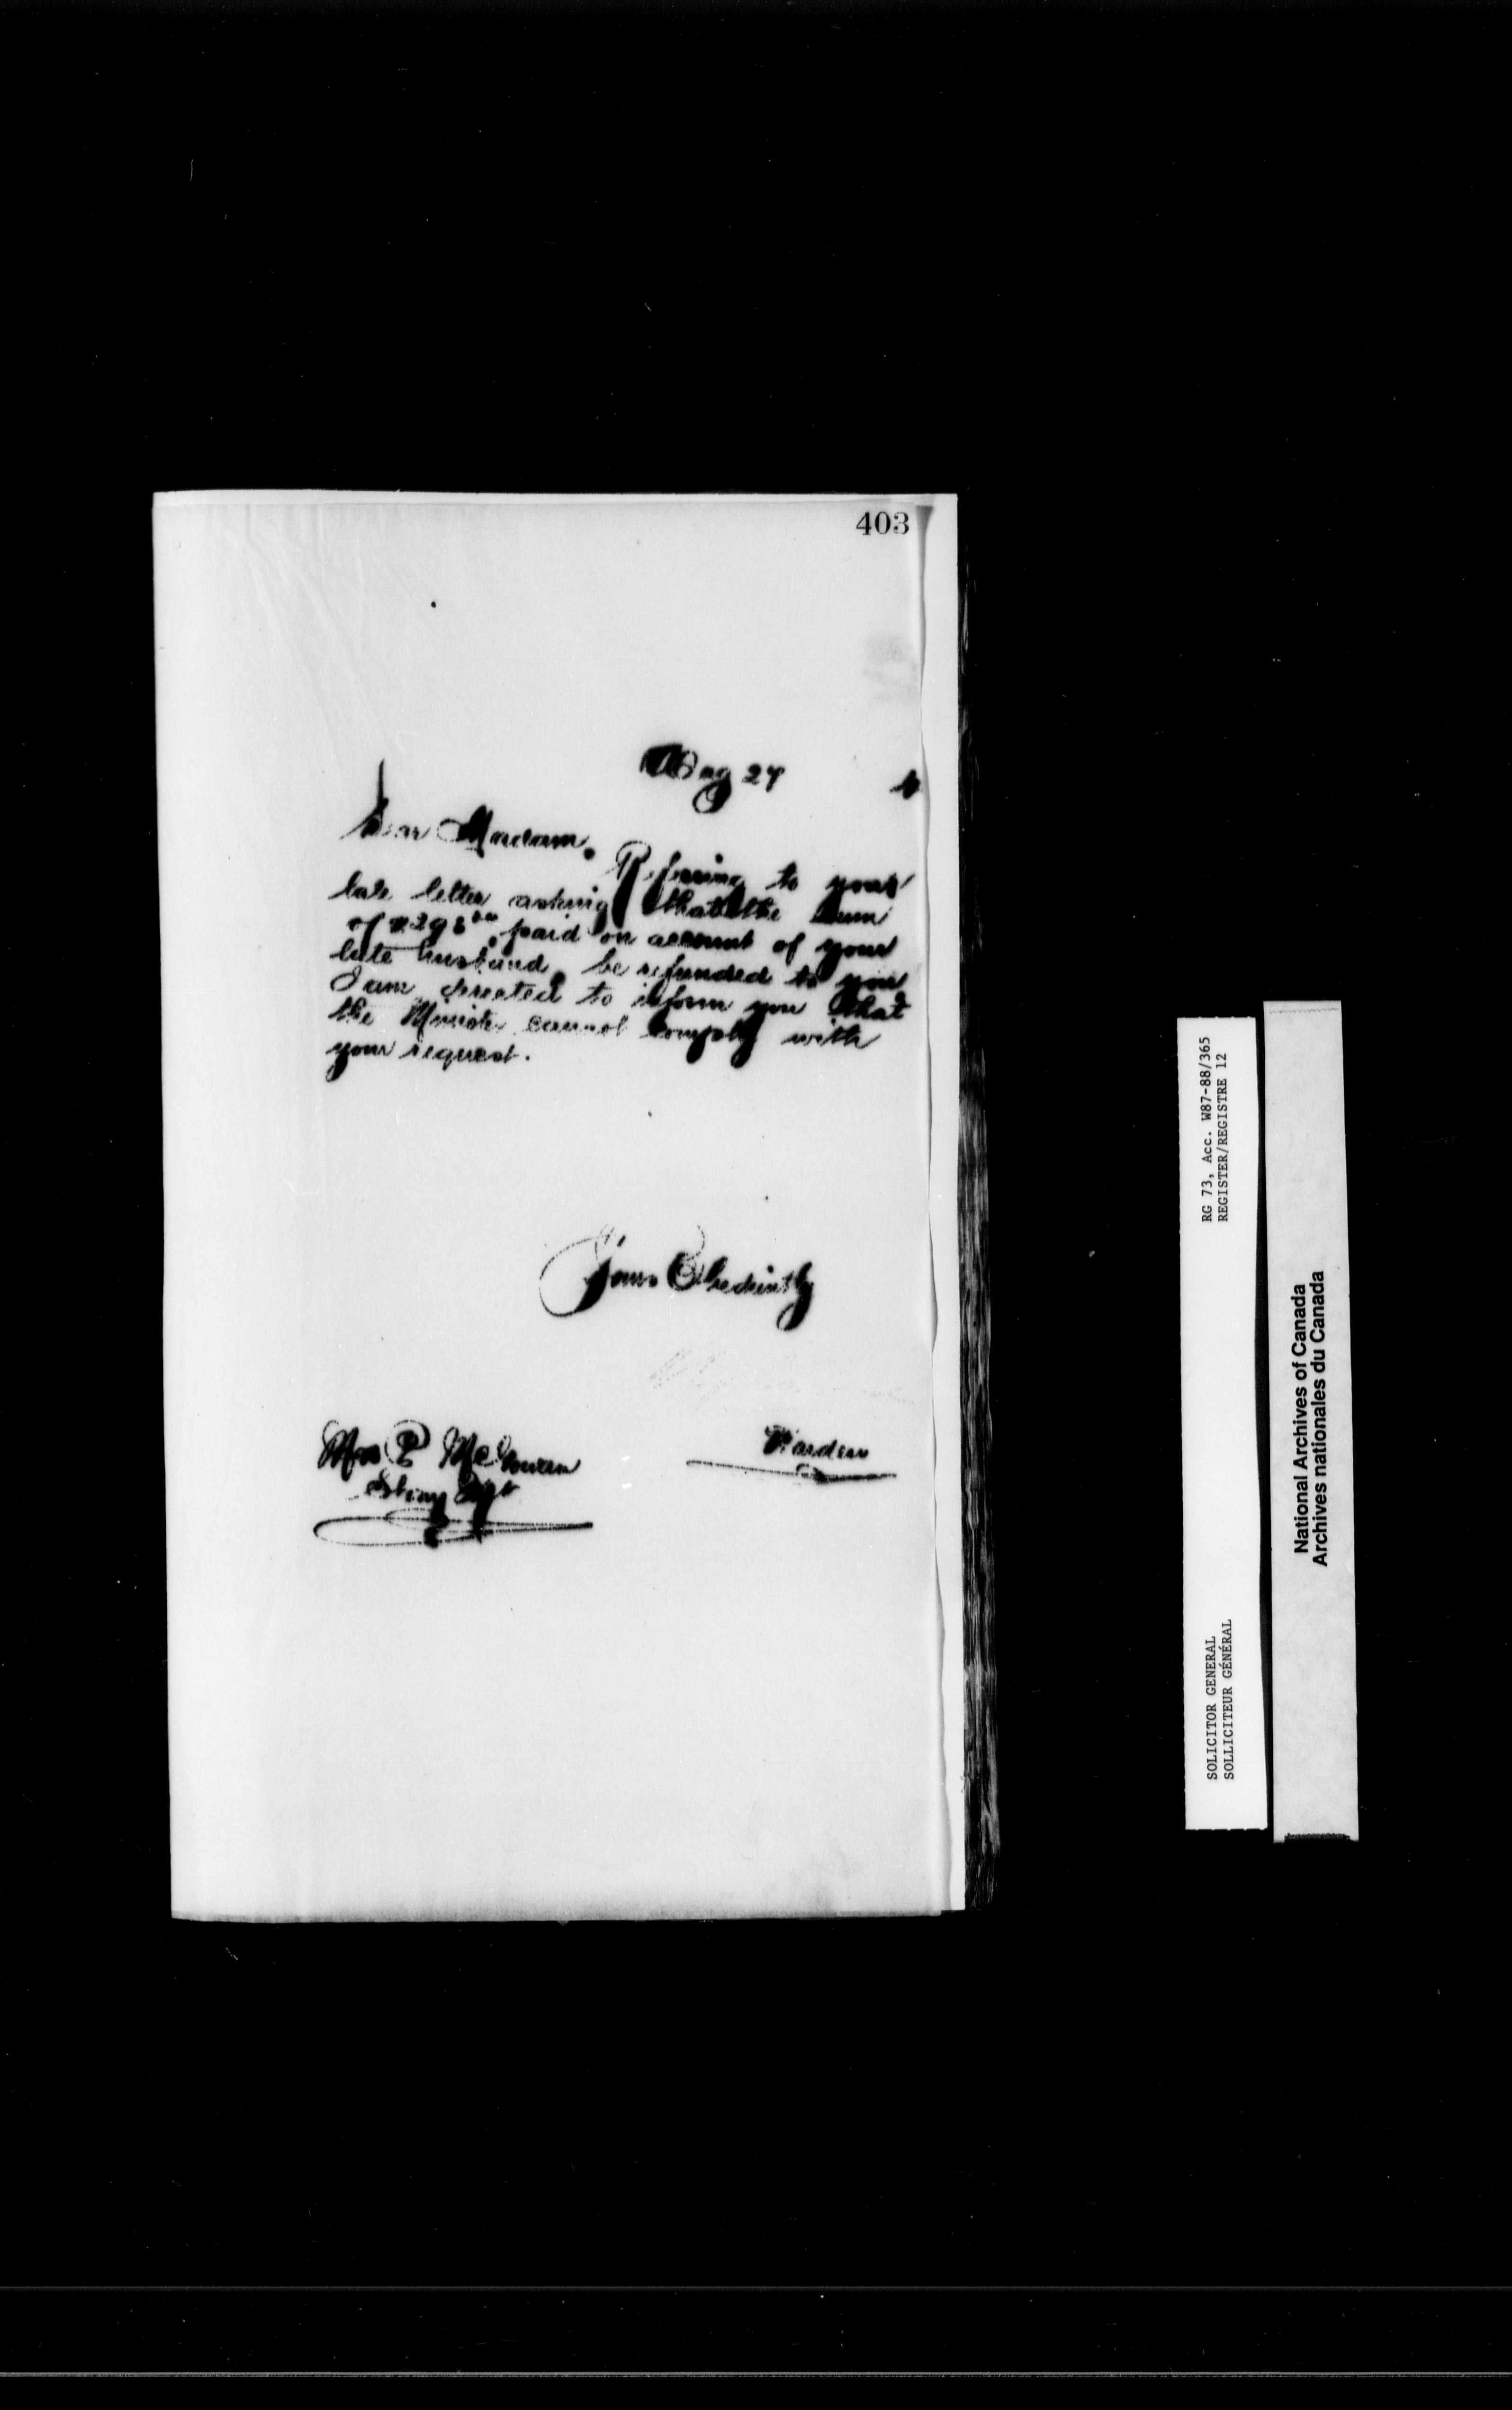 403
May 27
Dear Madam.
Referring to your
late letter asking that the sum
of $298 paid on account of your
late husband, be refunded to you
I am directed to inform you that
the Minister cannot comply with
your request.
Yours Obediently
Warden
Mrs P McGowan
RG 73, Acc. W87-88/365
REGISTER/REGISTRE 12
SOLICITOR GENERAL
SOLLICITEUR GÉNÉRAL
National Archives of Canada
Archives nationales du Canada